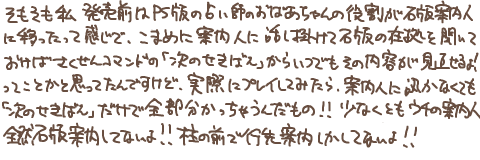 そもそも私 発売前はPS版の占い師のおばあちゃんの役割が石版案内人
に移ったって感じで、こまめに案内人に話し掛けて石版の在処を聞いて
おけばさくせんコマンドの「次のせきばん」からいつでもその内容が見直せるよ!
ってことかと思ってたんですけど、実際にプレイしてみたら、案内人に訊かなくても
「次のせきばん」だけで全部分かっちゃうんだもの!!少なくともウチの案内人
全然石版案内してないよ!!柱の前で行先案内しかしてないよ!!